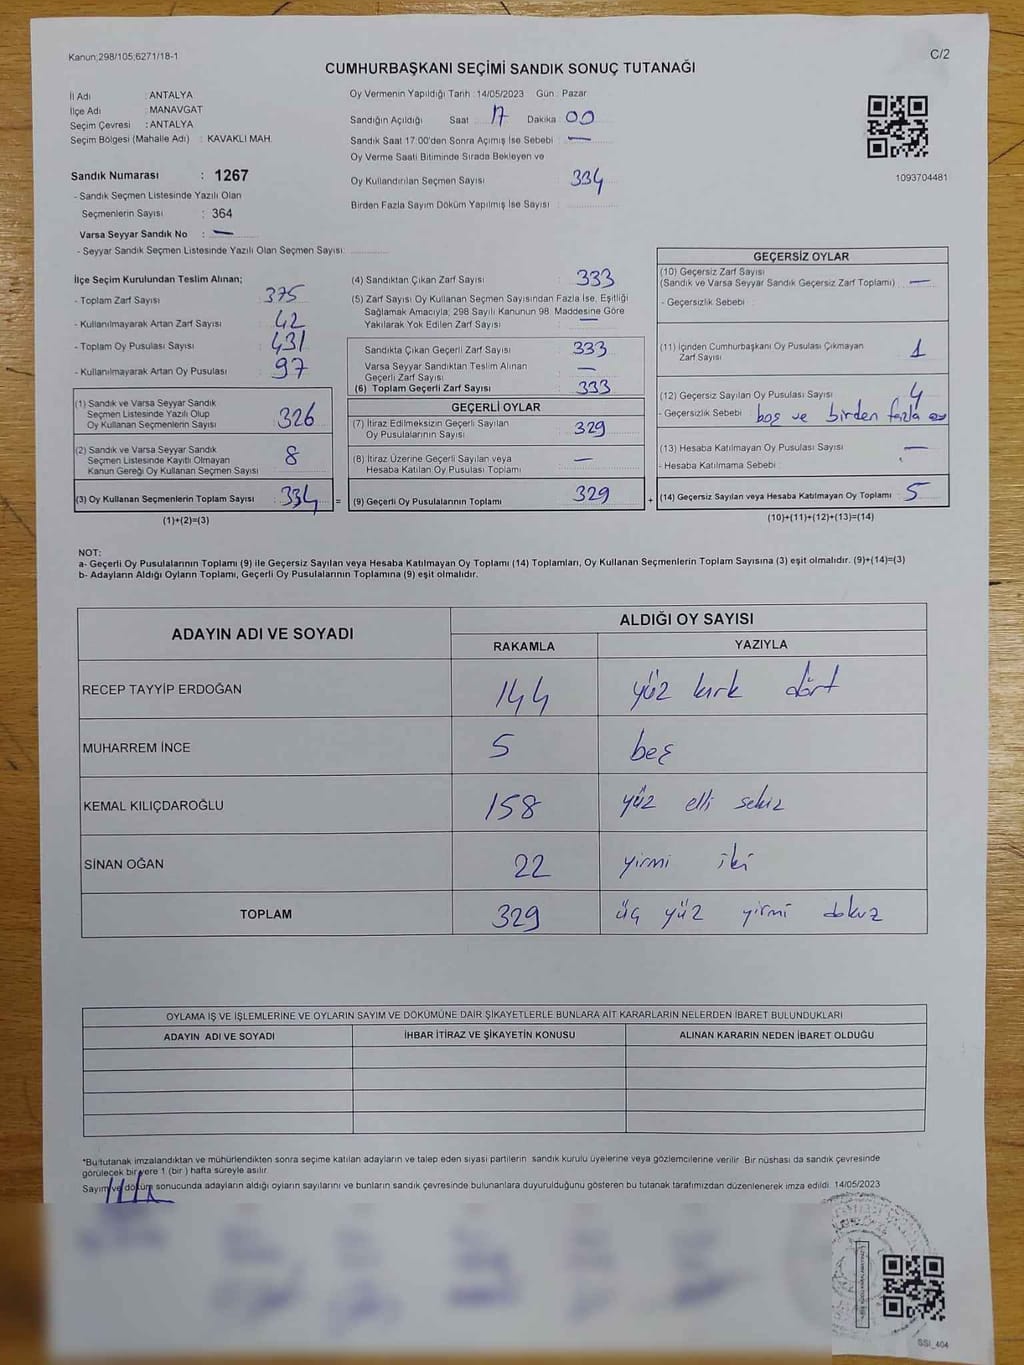 Kanun;298/105;6271/18-1
C/2
CUMHURBAŞKANI SEÇİMİ SANDIK SONUÇ TUTANAĞI
İl Adı : ANTALYA
İlçe Adı : MANAVGAT
Seçim Çevresi : ANTALYA
Seçim Bölgesi (Mahalle Adı) : KAVAKLI MAH.
Sandık Numarası : 1267
- Sandık Seçmen Listesinde Yazılı Olan
Seçmenlerin Sayısı : 364
Varsa Seyyar Sandık No : —
- Seyyar Sandık Seçmen Listesinde Yazılı Olan Seçmen Sayısı:
Oy Vermenin Yapıldığı Tarih : 14/05/2023 Gün : Pazar
Sandığın Açıldığı Saat 17 Dakika 00
Sandık Saat 17:00'den Sonra Açımış İse Sebebi : —
Oy Verme Saati Bitiminde Sırada Bekleyen ve
Oy Kullandırılan Seçmen Sayısı : 334
Birden Fazla Sayım Döküm Yapılmış İse Sayısı :
1093704481
İlçe Seçim Kurulundan Teslim Alınan;
- Toplam Zarf Sayısı : 375
- Kullanılmayarak Artan Zarf Sayısı : 42
- Toplam Oy Pusulası Sayısı : 431
- Kullanılmayarak Artan Oy Pusulası : 97
(1) Sandık ve Varsa Seyyar Sandık
Seçmen Listesinde Yazılı Olup
Oy Kullanan Seçmenlerin Sayısı : 326
(2) Sandık ve Varsa Seyyar Sandık
Seçmen Listesinde Kayıtlı Olmayan
Kanun Gereği Oy Kullanan Seçmen Sayısı : 8
(3) Oy Kullanan Seçmenlerin Toplam Sayısı : 334 =
(1)+(2)=(3)
(4) Sandıktan Çıkan Zarf Sayısı : 333
(5) Zarf Sayısı Oy Kullanan Seçmen Sayısından Fazla İse, Eşitliği
Sağlamak Amacıyla; 298 Sayılı Kanunun 98. Maddesine Göre
Yakılarak Yok Edilen Zarf Sayısı : —
Sandıkta Çıkan Geçerli Zarf Sayısı : 333
Varsa Seyyar Sandıktan Teslim Alınan
Geçerli Zarf Sayısı : —
(6) Toplam Geçerli Zarf Sayısı : 333
GEÇERLİ OYLAR
(7) İtiraz Edilmeksizin Geçerli Sayılan
Oy Pusulalarının Sayısı : 329
(8) İtiraz Üzerine Geçerli Sayılan veya
Hesaba Katılan Oy Pusulası Toplamı : —
(9) Geçerli Oy Pusulalarının Toplamı : 329 +
GEÇERSİZ OYLAR
(10) Geçersiz Zarf Sayısı
(Sandık ve Varsa Seyyar Sandık Geçersiz Zarf Toplamı) : —
- Geçersizlik Sebebi :
(11) İçinden Cumhurbaşkanı Oy Pusulası Çıkmayan
Zarf Sayısı : 1
(12) Geçersiz Sayılan Oy Pusulası Sayısı : 4
- Geçersizlik Sebebi : boş ve birden fazla
(13) Hesaba Katılmayan Oy Pusulası Sayısı : —
- Hesaba Katılmama Sebebi :
(14) Geçersiz Sayılan veya Hesaba Katılmayan Oy Toplamı : 5
(10)+(11)+(12)+(13)=(14)
NOT:
a- Geçerli Oy Pusulalarının Toplamı (9) ile Geçersiz Sayılan veya Hesaba Katılmayan Oy Toplamı (14) Toplamları, Oy Kullanan Seçmenlerin Toplam Sayısına (3) eşit olmalıdır. (9)+(14)=(3)
b- Adayların Aldığı Oyların Toplamı, Geçerli Oy Pusulalarının Toplamına (9) eşit olmalıdır.
ADAYIN ADI VE SOYADI ALDIĞI OY SAYISI
RAKAMLA YAZIYLA
RECEP TAYYİP ERDOĞAN 144 yüz kırk dört
MUHARREM İNCE 5 beş
KEMAL KILIÇDAROĞLU 158 yüz elli sekiz
SİNAN OĞAN 22 yirmi iki
TOPLAM 329 üç yüz yirmi dokuz
OYLAMA İŞ VE İŞLEMLERİNE VE OYLARIN SAYIM VE DÖKÜMÜNE DAİR ŞİKAYETLERLE BUNLARA AİT KARARLARIN NELERDEN İBARET BULUNDUKLARI
ADAYIN ADI VE SOYADI İHBAR İTİRAZ VE ŞİKAYETİN KONUSU ALINAN KARARIN NEDEN İBARET OLDUĞU
*Bu tutanak imzalandıktan ve mühürlendikten sonra seçime katılan adayların ve talep eden siyasi partilerin sandık kurulu üyelerine veya gözlemcilerine verilir. Bir nüshası da sandık çevresinde
görülecek bir yere 1 (bir) hafta süreyle asılır.
Sayım ve döküm sonucunda adayların aldığı oyların sayılarını ve bunların sandık çevresinde bulunanlara duyurulduğunu gösteren bu tutanak tarafımızdan düzenlenerek imza edildi. 14/05/2023
SSİ_404